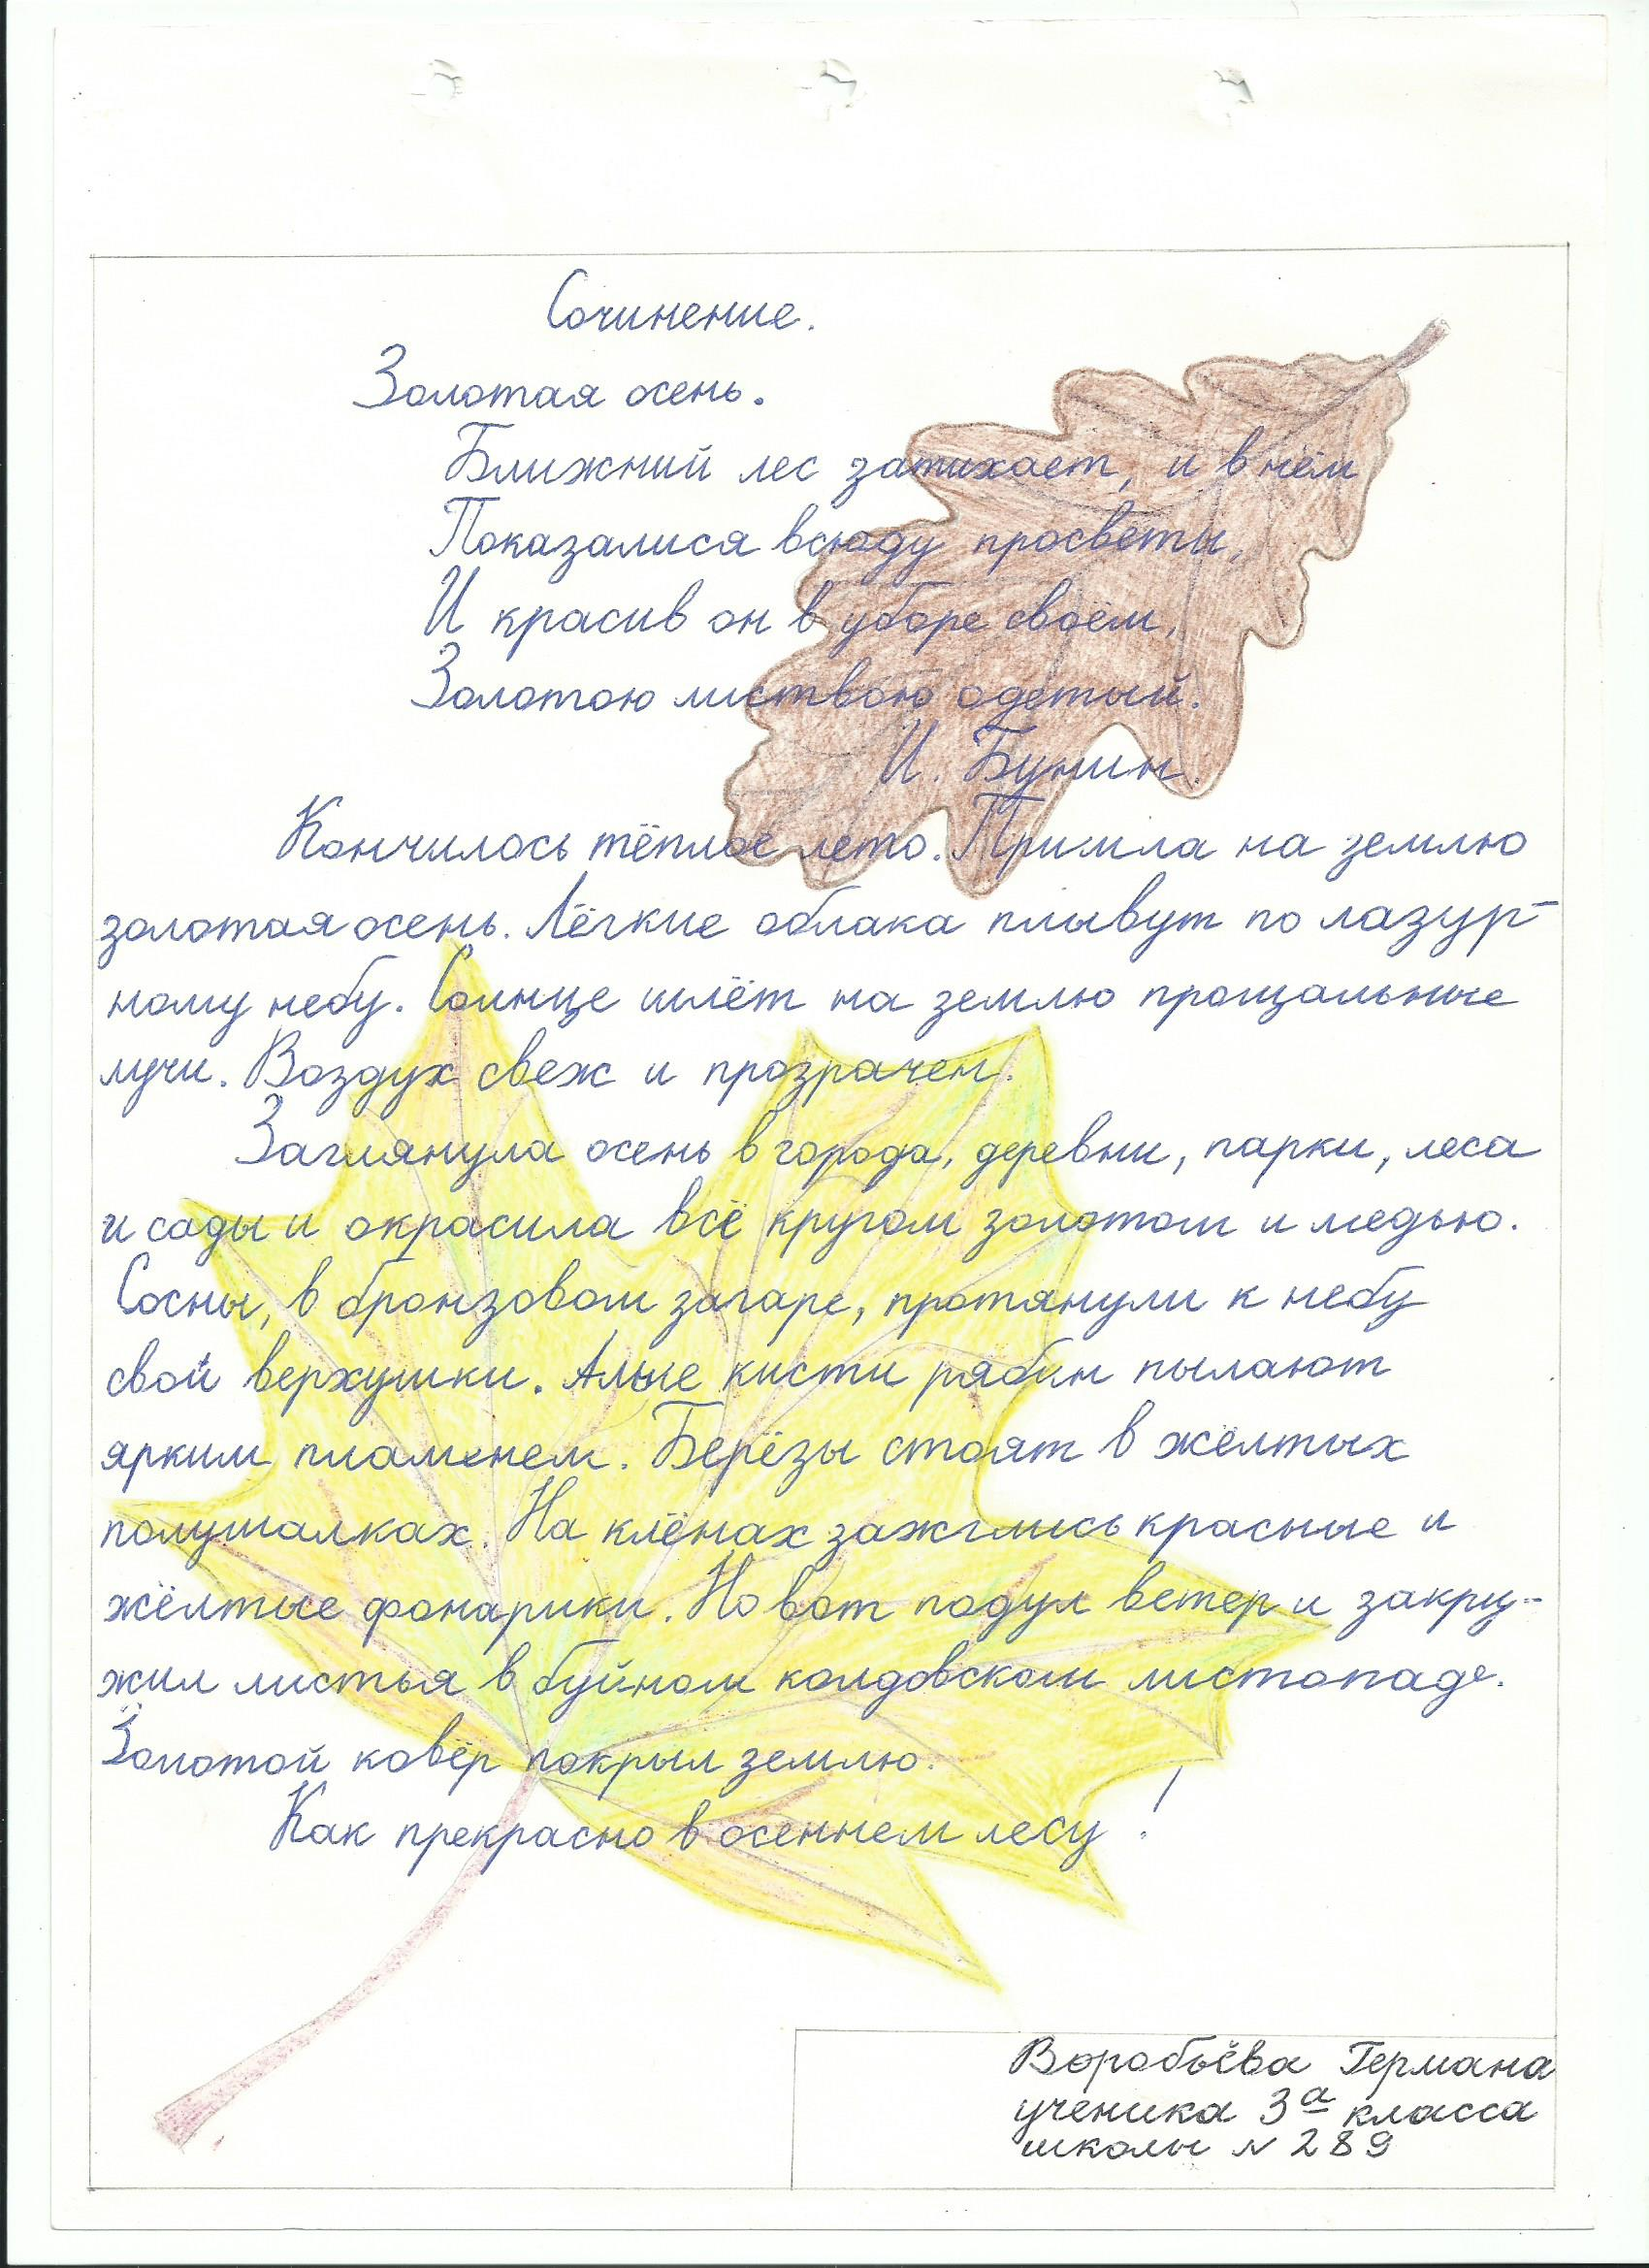 Сочинение.
Золотая осень.
Ближний лес затихает, и в нём
Показалися всюду просветы,
И красив он в уборе своём,
Золотою листвою одетый.
И. Бунин.
Кончилось тёплое лето. Пришла на землю
золотая осень. Лёгкие облака плывут по лазур-
ному небу. Солнце шлёт на землю прощальные
лучи. Воздух свеж и прозрачен.
Заглянула осень в города, деревни, парки, леса
и сады и окрасила всё кругом золотом и медью.
Сосны, в бронзовом загаре, протянули к небу
свои верхушки. Алые кисти рябин пылают
ярким пламенем. Берёзы стоят в жёлтых
полушалках. На клёнах зажглись красные и
жёлтые фонарики. Но вот подул ветер и закру-
жил листья в буйном колдовском листопаде.
Золотой ковёр покрыл землю.
Как прекрасно в осеннем лесу!
Воробьёва Германа
ученика 3а класса
школы № 289